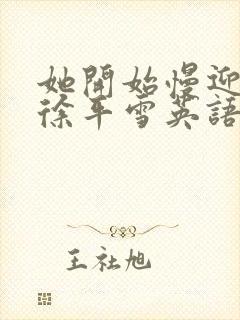 她開始慢迎
徐平雪英語
王社旭